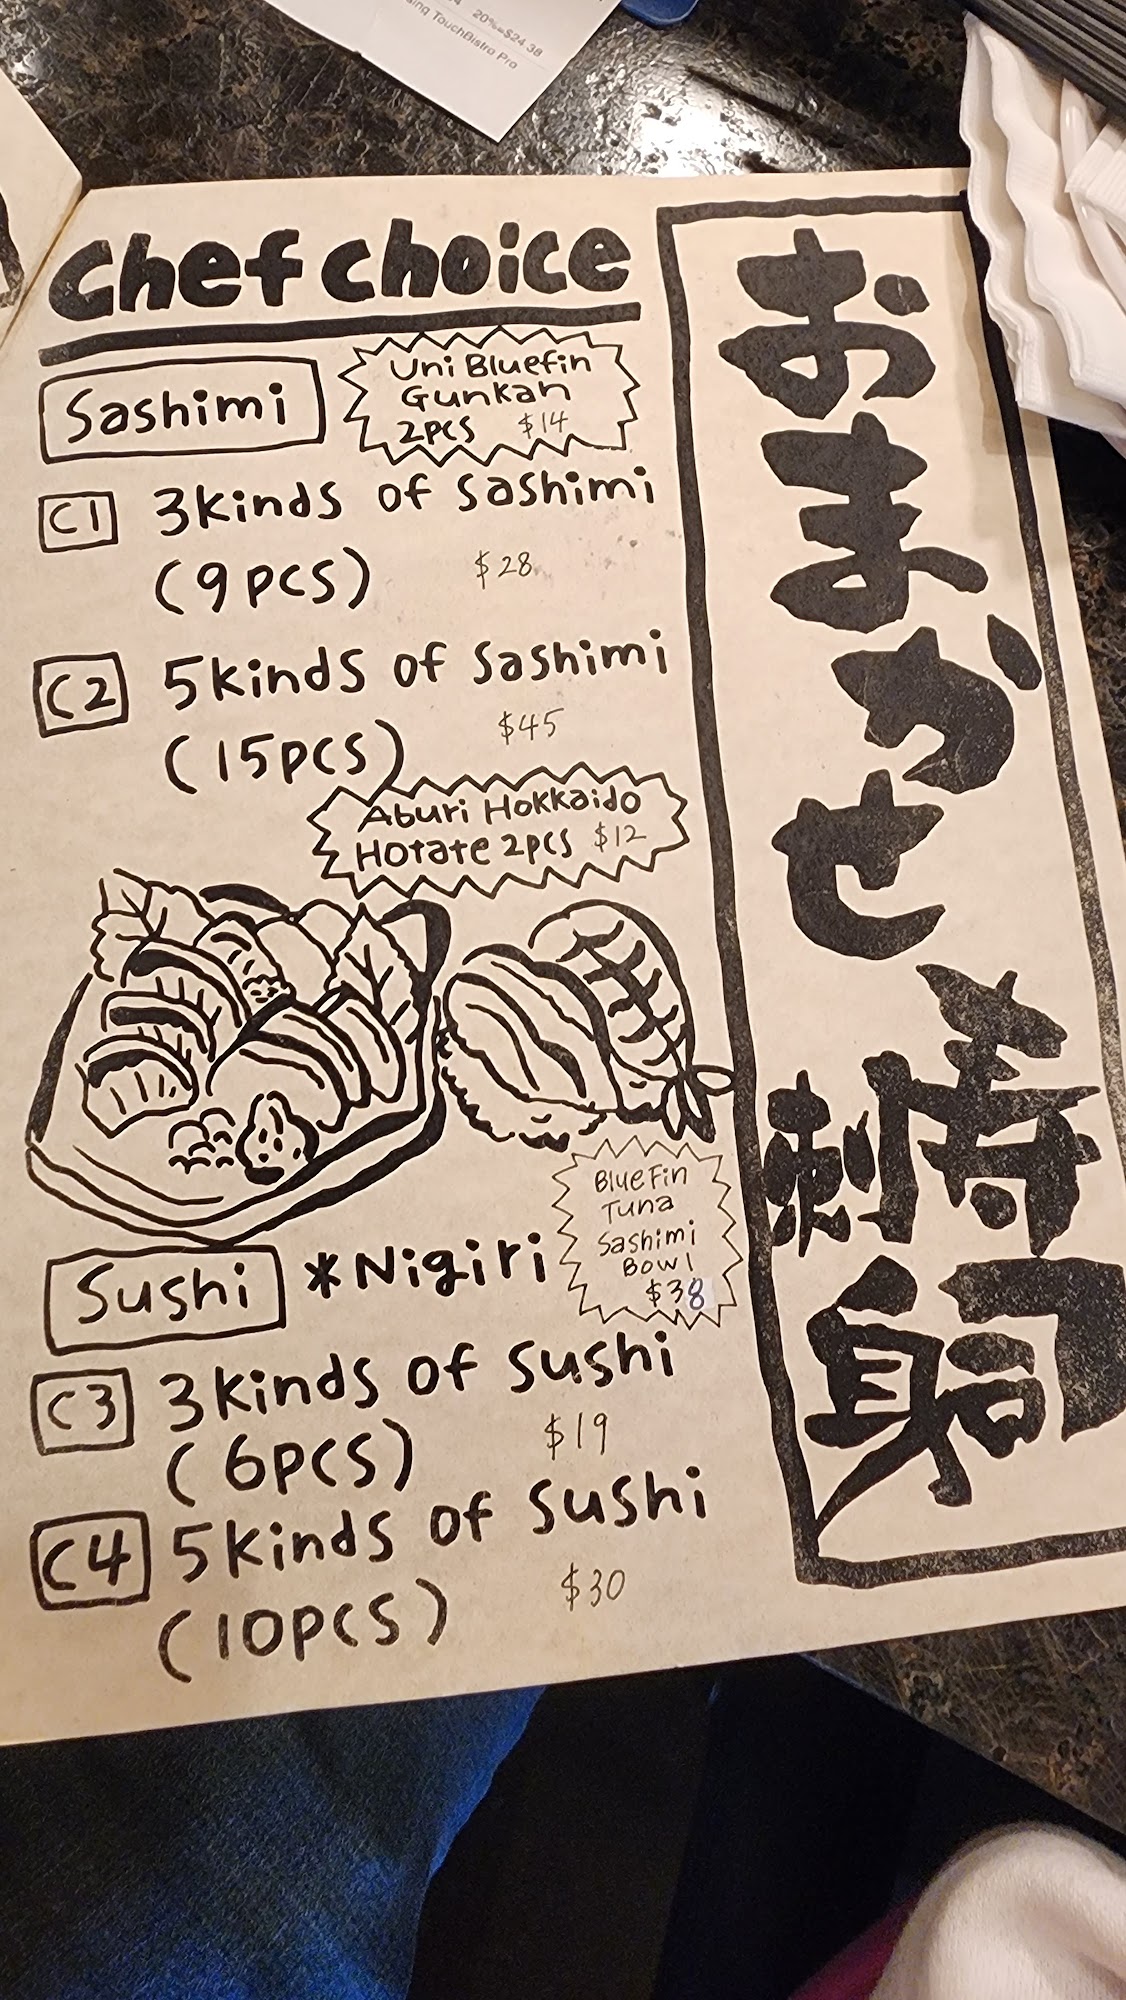 20%=$24.38
using TouchBistro Pro
Chef choice
Sashimi
Uni Bluefin
Gunkan
2pcs $14
C1 3kinds of Sashimi
(9pcs) $28
C2 5kinds of Sashimi
(15pcs) $45
Aburi Hokkaido
Hotate 2pcs $12
BlueFin
Tuna
Sashimi
Bowl
$38
Sushi *Nigiri
C3 3kinds of Sushi
(6pcs) $19
C4 5kinds of Sushi
(10pcs) $30
おまかせ
寿司
刺身